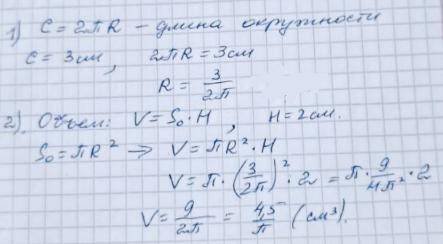 1) C = 2πR – длина окружности
C = 3см, 2πR = 3см
R = 3/2π
2) Объем: V = S₀·H, H = 2см.
S₀ = πR² → V = πR²·H
V = π·(3/2π)²·2 = π·9/4π²·2
V = 9/2π = 4,5/π (см³).